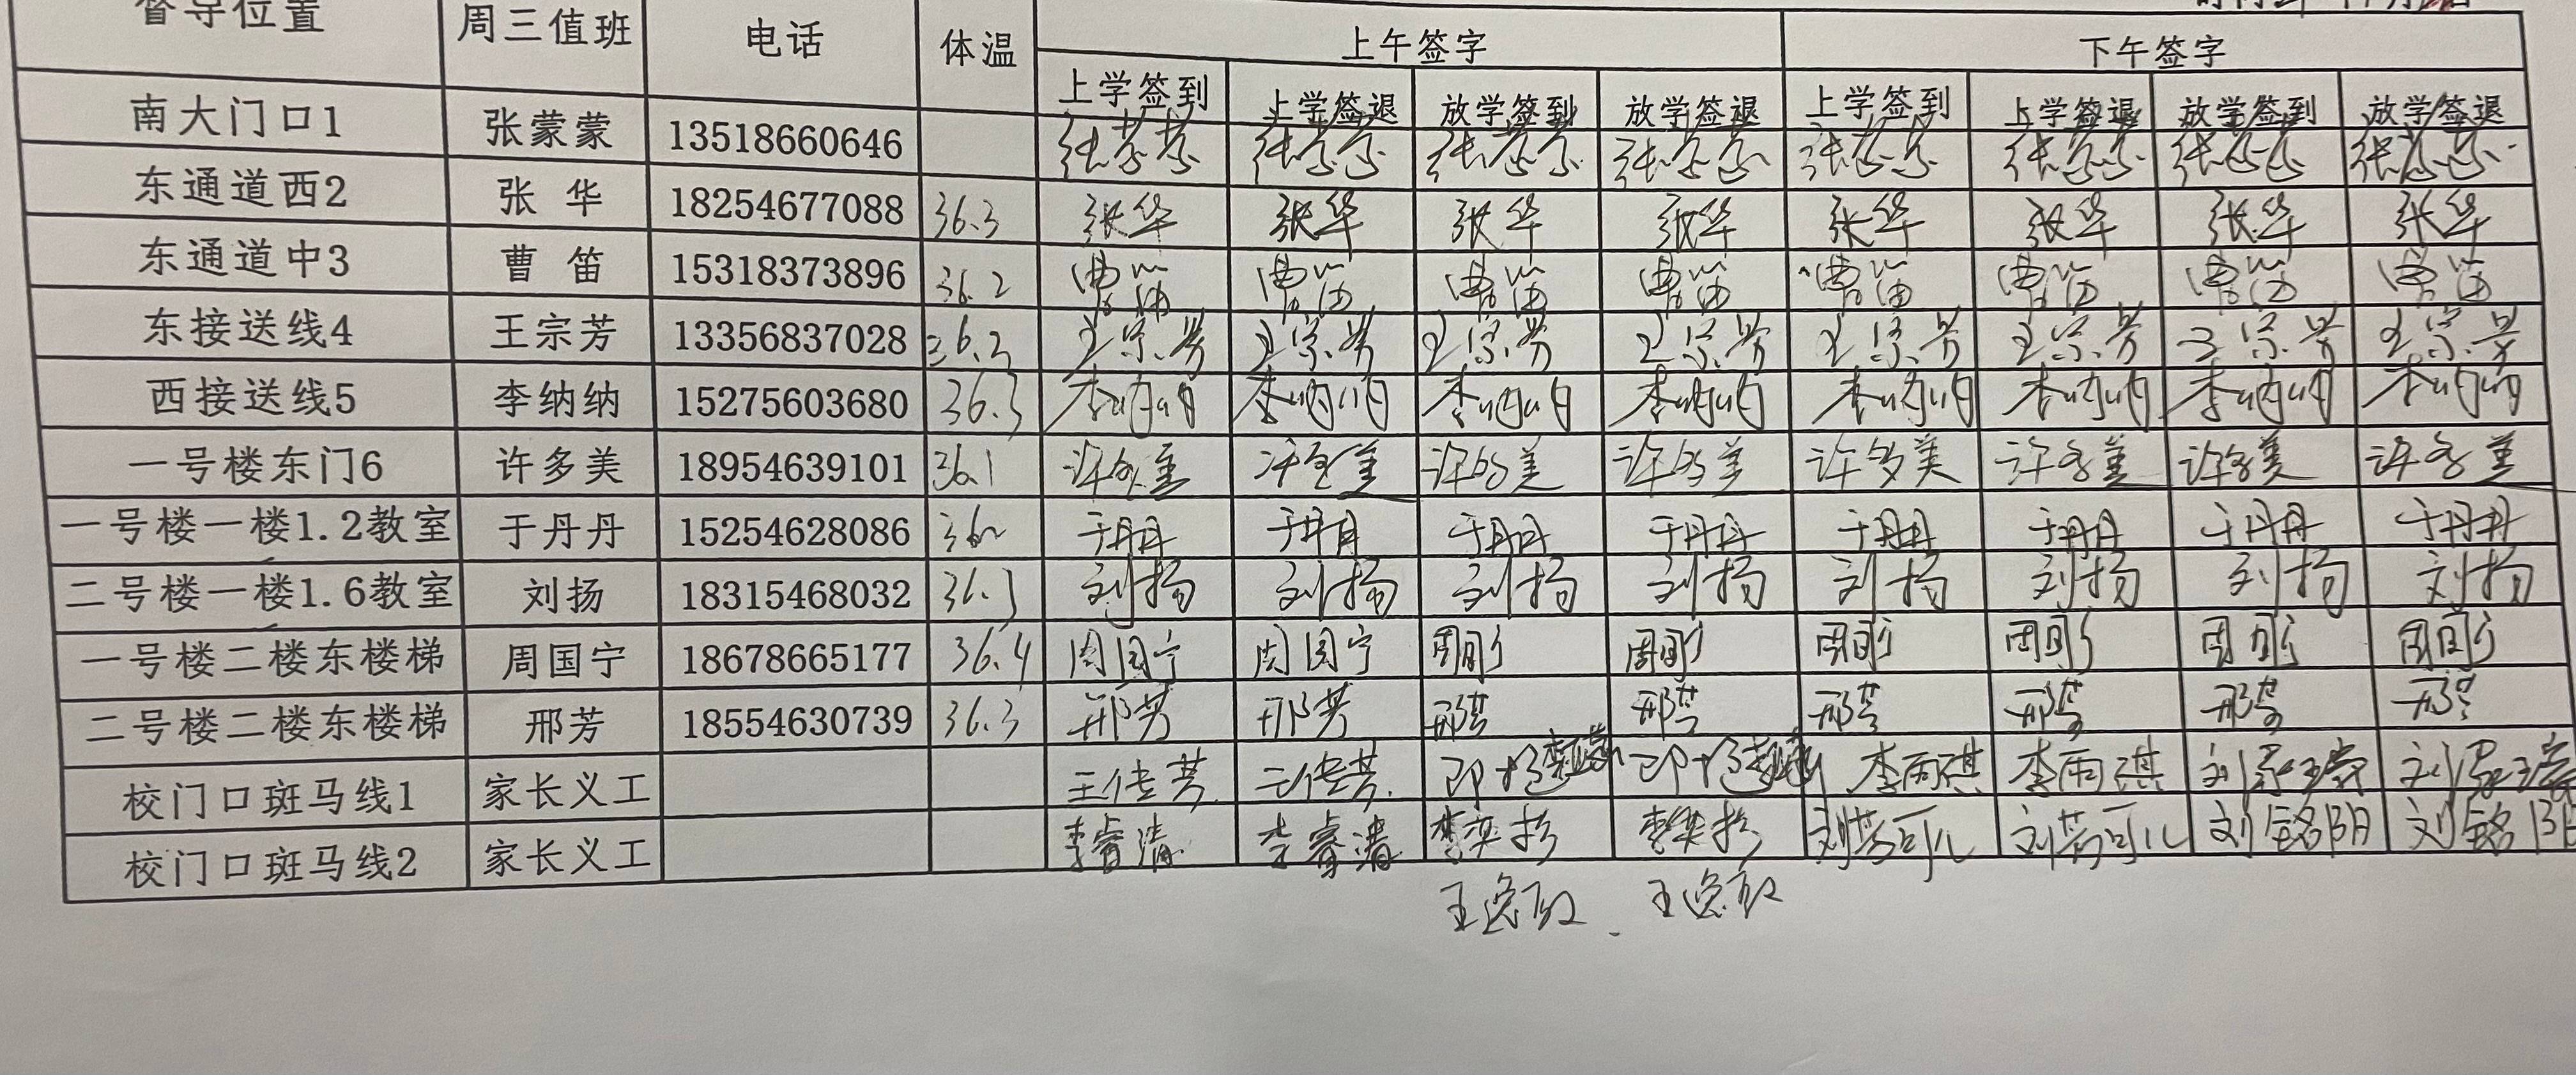 督导位置 周三值班 电话 体温 上午签字 下午签字
上学签到 上学签退 放学签到 放学签退 上学签到 上学签退 放学签到 放学签退
南大门口1 张蒙蒙 13518660646
东通道西2 张 华 18254677088 36.3 张华 张华 张华 张华 张华 张华 张华 张华
东通道中3 曹 笛 15318373896 36.2 曹笛 曹笛 曹笛 曹笛 曹笛 曹笛 曹笛 曹笛
东接送线4 王宗芳 13356837028 36.2 王宗芳 王宗芳 王宗芳 王宗芳 王宗芳 王宗芳 王宗芳 王宗芳
西接送线5 李纳纳 15275603680 36.3 李纳纳 李纳纳 李纳纳 李纳纳 李纳纳 李纳纳 李纳纳 李纳纳
一号楼东门6 许多美 18954639101 36.1 许多美 许多美 许多美 许多美 许多美 许多美 许多美 许多美
一号楼一楼1.2教室 于丹丹 15254628086 于丹丹 于丹丹 于丹丹 于丹丹 于丹丹 于丹丹 于丹丹 于丹丹
二号楼一楼1.6教室 刘扬 18315468032 36.3 刘扬 刘扬 刘扬 刘扬 刘扬 刘扬 刘扬 刘扬
一号楼二楼东楼梯 周国宁 18678665177 36.4 周国宁 周国宁 周国宁 周国宁 周国宁 周国宁 周国宁 周国宁
二号楼二楼东楼梯 邢芳 18554630739 36.3 邢芳 邢芳 邢芳 邢芳 邢芳 邢芳 邢芳 邢芳
校门口斑马线1 家长义工 王传芳 王传芳 李雨琪 李雨琪
校门口斑马线2 家长义工 李睿清 李睿清 李奕扬 李奕扬 刘芳可儿 刘芳可儿 刘铭阳 刘铭阳